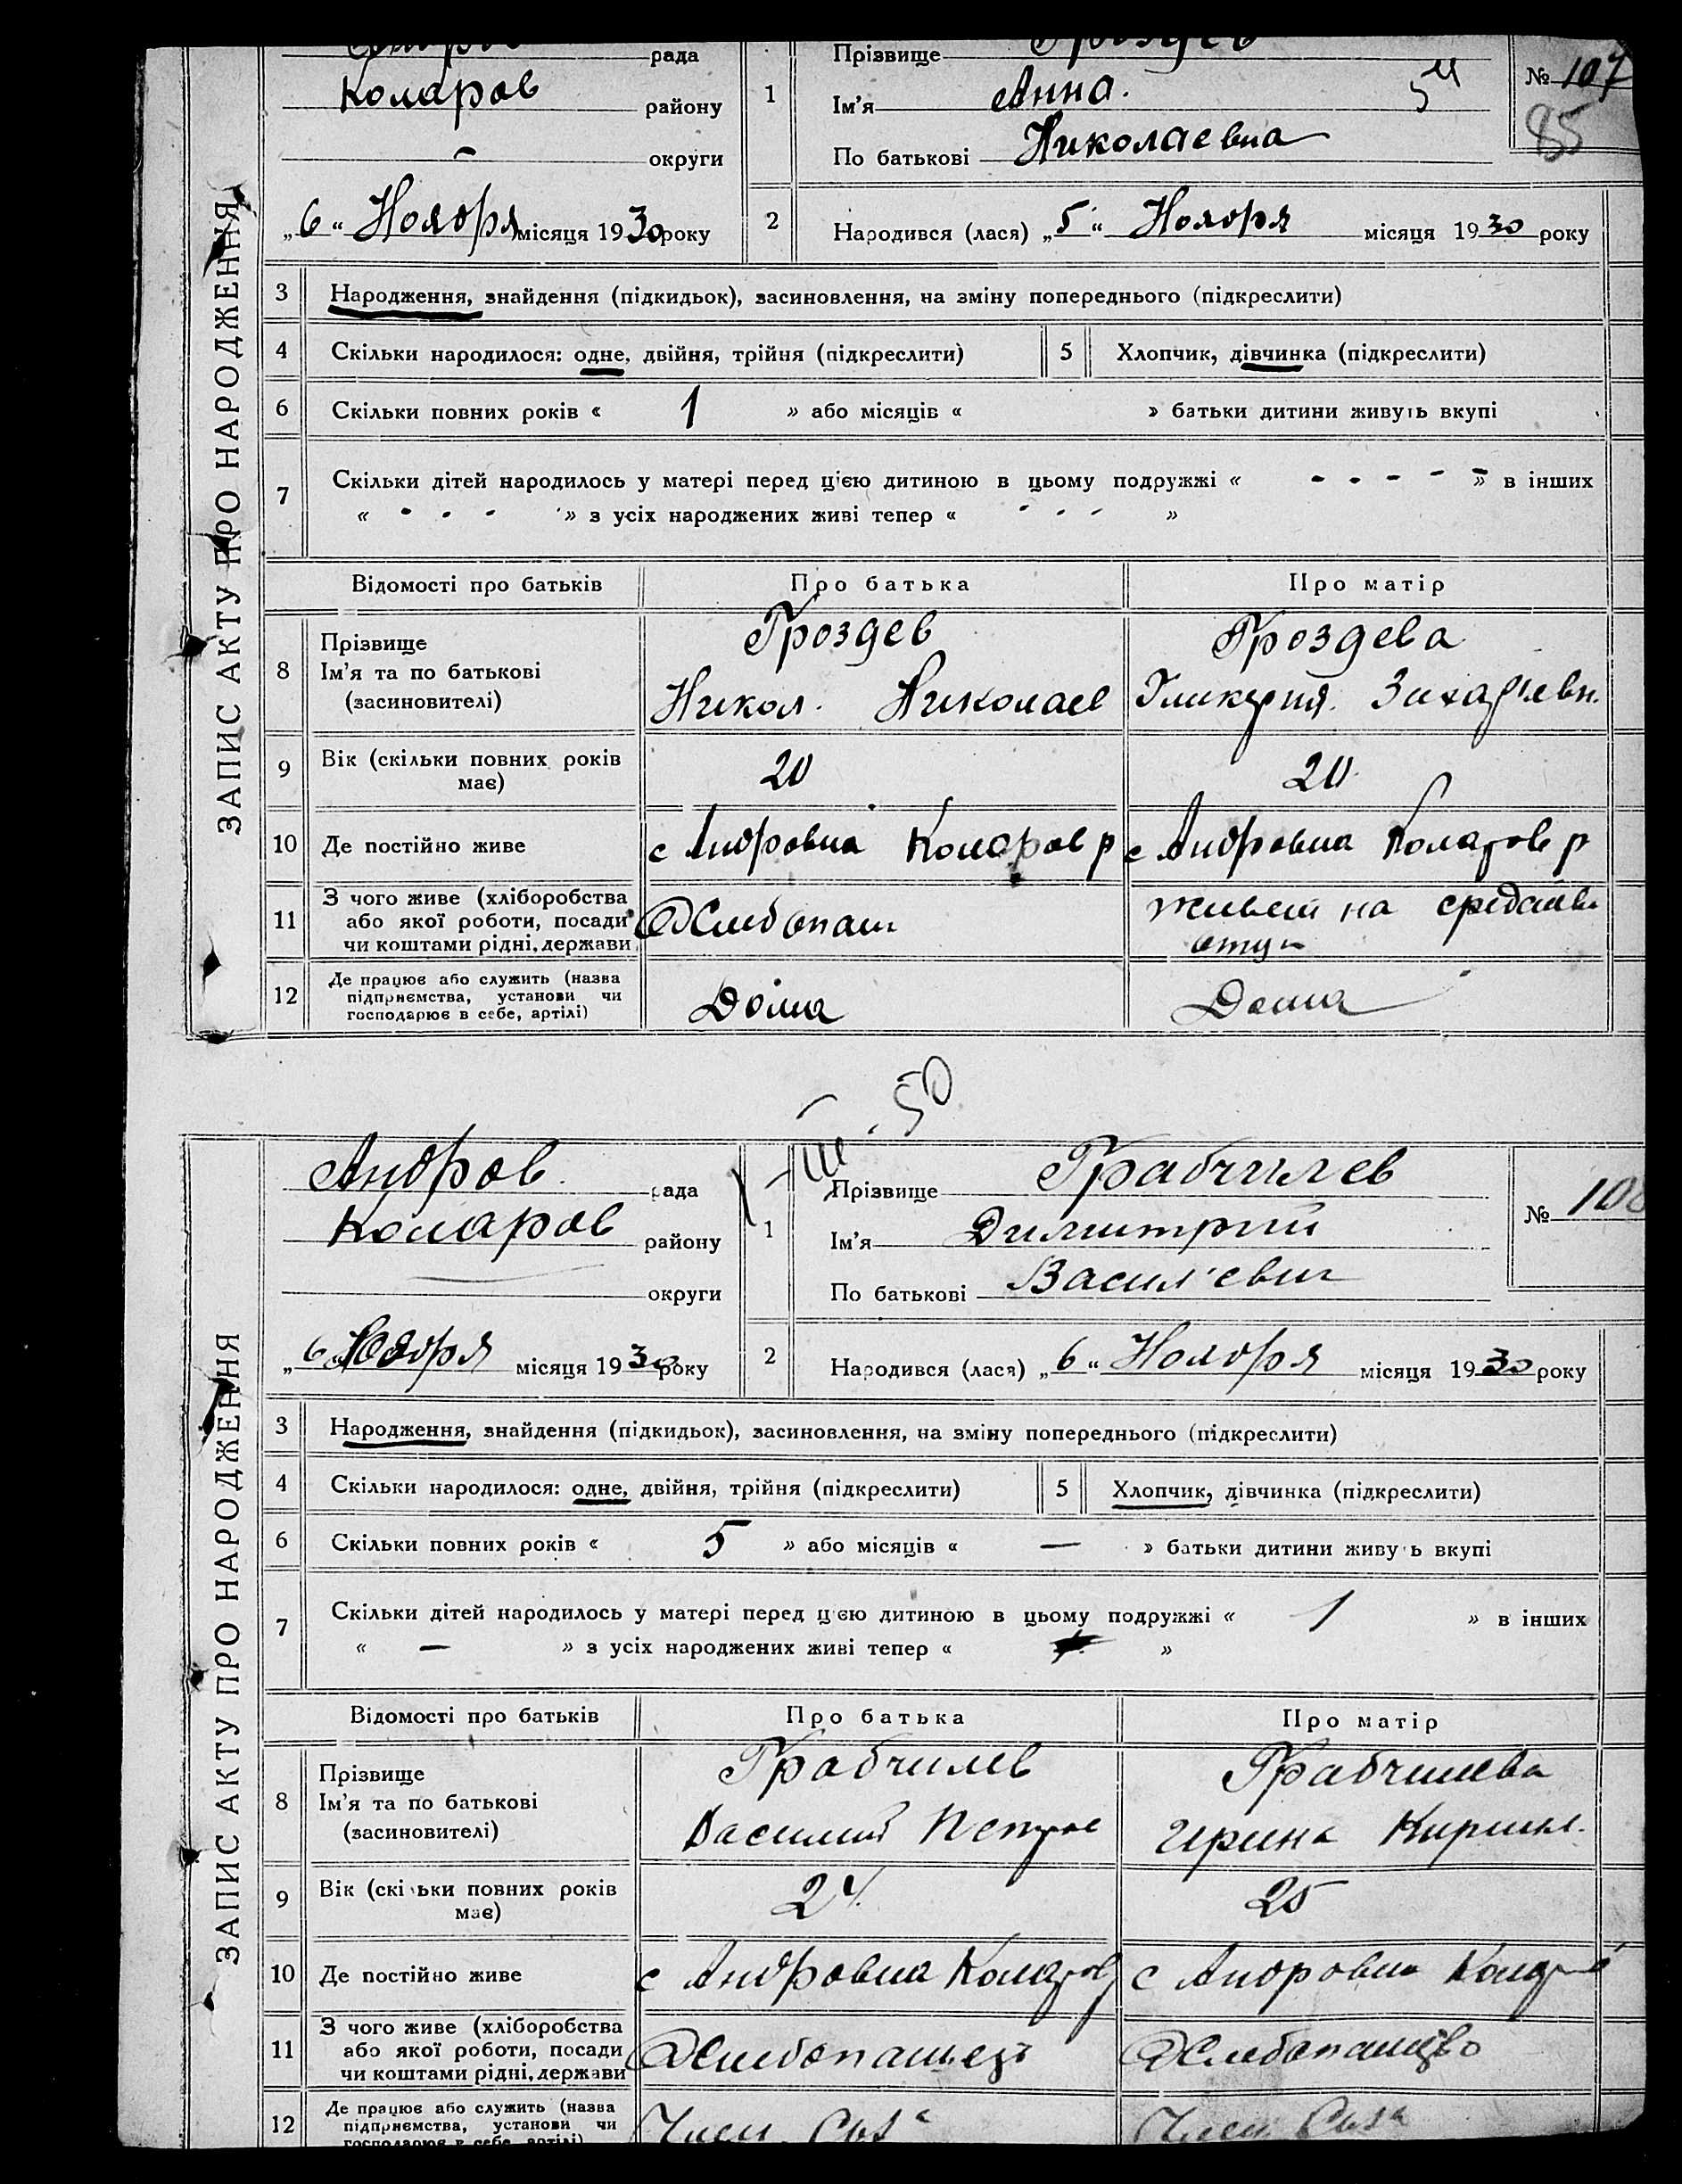 рада Прізвище
Коларов району 1 Ім’я Анна. № 107
85
округи По батькові Николаевна
„6“ Ноября місяця 1930 року 2 Народився (лася) „5“ Ноября місяця 1930 року
ЗАПИС АКТУ ПРО НАРОДЖЕННЯ
3 Народження, знайдення (підкидьок), засиновлення, на зміну попереднього (підкреслити)
4 Скільки народилося: одне, двійня, трійня (підкреслити) 5 Хлопчик, дівчинка (підкреслити)
6 Скільки повних років « 1 » або місяців « » батьки дитини живуть вкупі
7 Скільки дітей народилось у матері перед цією дитиною в цьому подружжі « - - - - - » в інших
« - - - » з усіх народжених живі тепер « - - - »
Відомості про батьків Про батька Про матір
8 Прізвище Гроздев Гроздева
Ім’я та по батькові Никол. Николаев Гликерия.
(засновителі)
9 Вік (скільки повних років має) 20 20
10 Де постійно живе с Андровка Коларов р с Андровка Коларов р
11 З чого живе (хліборобства
або якої роботи, посади
чи коштами рідні, держави Хлебопаш живет на средства
12 Де працює або служить (назва
підприємства, установи чи
господарює в себе, артілі) Дома Дома
50
Андров. рада Прізвище Грабчилев
Коларов району 1 Ім’я Димитрий № 108
округи По батькові Васил'евич
„6“ Ноября місяця 1930 року 2 Народився (лася) „6“ Ноября місяця 1930 року
ЗАПИС АКТУ ПРО НАРОДЖЕННЯ
3 Народження, знайдення (підкидьок), засиновлення, на зміну попереднього (підкреслити)
4 Скільки народилося: одне, двійня, трійня (підкреслити) 5 Хлопчик, дівчинка (підкреслити)
6 Скільки повних років « 5 » або місяців « — » батьки дитини живуть вкупі
7 Скільки дітей народилось у матері перед цією дитиною в цьому подружжі « 1 » в інших
« — » з усіх народжених живі тепер « »
Відомості про батьків Про батька Про матір
8 Прізвище Грабчилев Грабчилева
Ім’я та по батькові Василий Петров Ирина Кирилл.
(засиновителі)
9 Вік (скільки повних років має) 24 25
10 Де постійно живе с Андровка Коларов с Андровка Коларов
11 З чого живе (хліборобства
або якої роботи, посади
чи коштами рідні, держави Хлебопашец Хлебопашество
12 Де працює або служить (назва
підприємства, установи чи
господарює в себе, артілі) Член Член